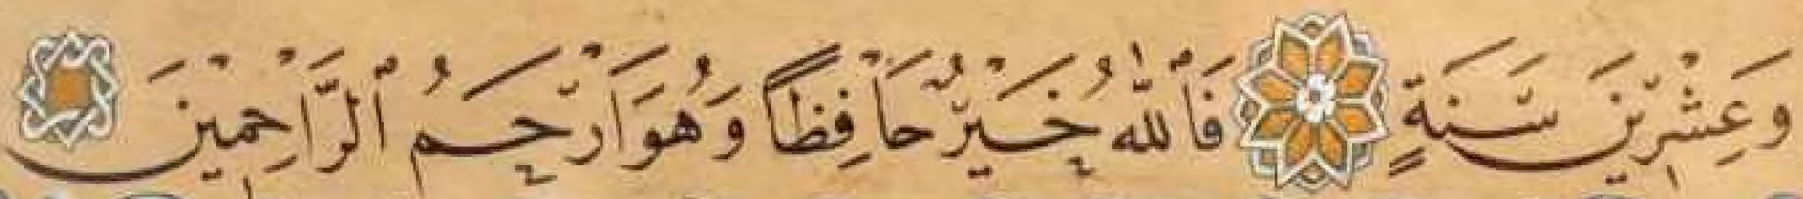 وَعِشْرِينَ سَنَةٍ فَٱللّٰهُ خَيْرٌ حَافِظًا وَهُوَ أَرْحَمُ ٱلرَّاحِمِينَ